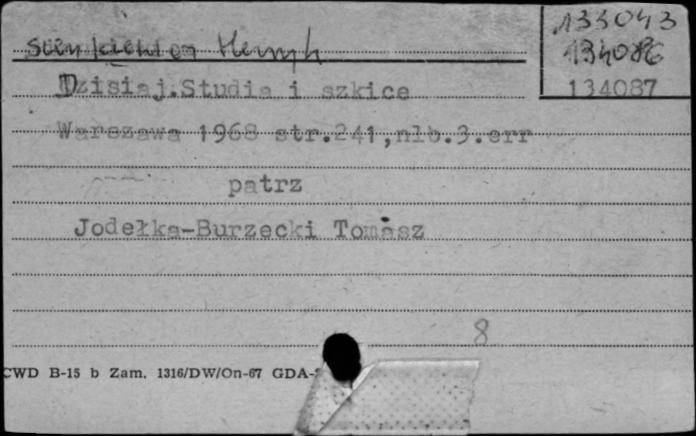 133043
Sienkiewicz Henryk
134086
Dzisiaj.Studia i szkice
134087
Warszawa 1968 str.241,nlb.3.err
patrz
Jodełka-Burzecki Tomasz
8
CWD B-15 b Zam. 1316/DW/On-67 GDA-